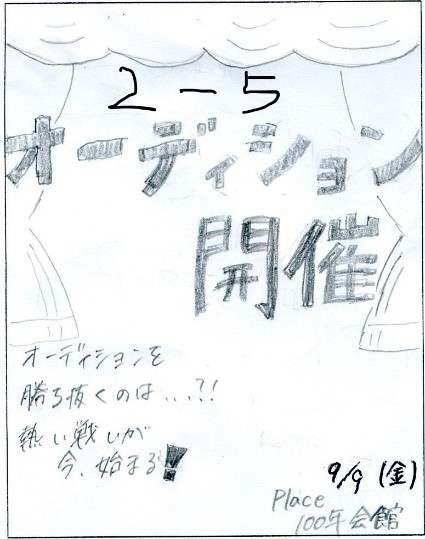 2-5
オーディション
開催
オーディションを
勝ち抜くのは...?!
熱い戦いが
今、始まる!
9/9 (金)
Place
100年会館